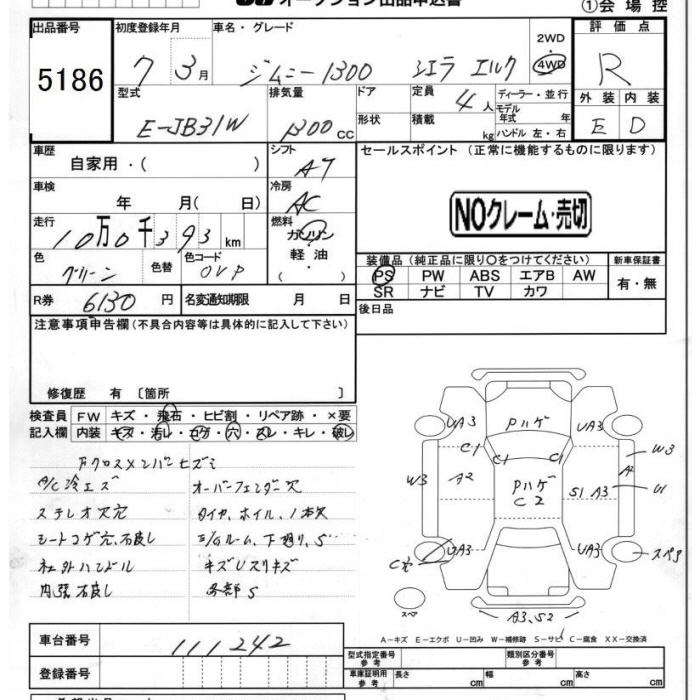 オークション出品申込書
①会場控
出品番号 初度登録年月 車名・グレード 2WD 評価点
5186 7 3月 ジムニー1300 シエラ エルク 4WD R
型式 排気量 ドア 定員 4人 ディーラー・並行 外装 内装
E-JB31W 1300cc 形状 積載 kg モデル年式 年 ハンドル 左・右 E D
車歴 シフト セールスポイント (正常に機能するものに限ります)
自家用・( ) AT
車検 冷房
年 月( 日) AC NOクレーム・売切
走行 燃料
10万0千393km ガソリン
色 色替 色コード 軽油 装備品 (純正品に限り○をつけてください) 新車保証書
グリーン OVP ( ・ ) PS PW ABS エアB AW 有・無
R券 6130円 名変通知期限 月 日 SR ナビ TV カワ
注意事項申告欄(不具合内容等は具体的に記入して下さい) 後日品
修復歴 有 [箇所 ]
検査員 FW キズ・飛石・ヒビ割・リペア跡・×要
記入欄 内装 キズ・汚レ・コゲ・穴・スレ・キレ・破レ
クロスメンバヒズミ
A/C冷エズ オーバーフェンダー欠
ステレオ欠穴 タイヤ、ホイル、1本欠
シートコゲ穴、汚良し E/Gルーム、下廻り、S
社外ハンドル キズUスリキズ
内張汚良し 各部S
UA3 Pハゲ UA3
C1 C1 C1 W3
W3 A2 Pハゲ A2
C2 S1 A3 U1
UA3 UA3 スペタ
C穴
スペア A3、S2
A－キズ E－エクボ U－凹み W－補修跡 S－サビ C－腐食 XX－交換済
車台番号 111242
型式指定番号 参考 類別区分番号 参考
登録番号 車庫証明用 参考 長さ cm 幅 cm 高さ cm